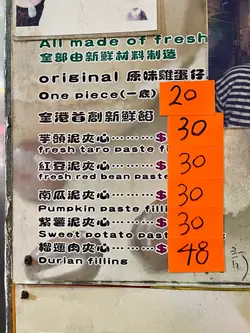 All made of fresh
全部由新鮮材料制造
original 原味雞蛋仔
One piece(一底) 20
全港首創新鮮餡
芋頭泥夾心………$ 30
fresh taro paste f
紅豆泥夾心………$ 30
fresh red bean paste
南瓜泥夾心………$ 30
Pumpkin paste filli
紫薯泥夾心………$ 30
Sweet potato past
榴槤肉夾心……… 48
Durian filling